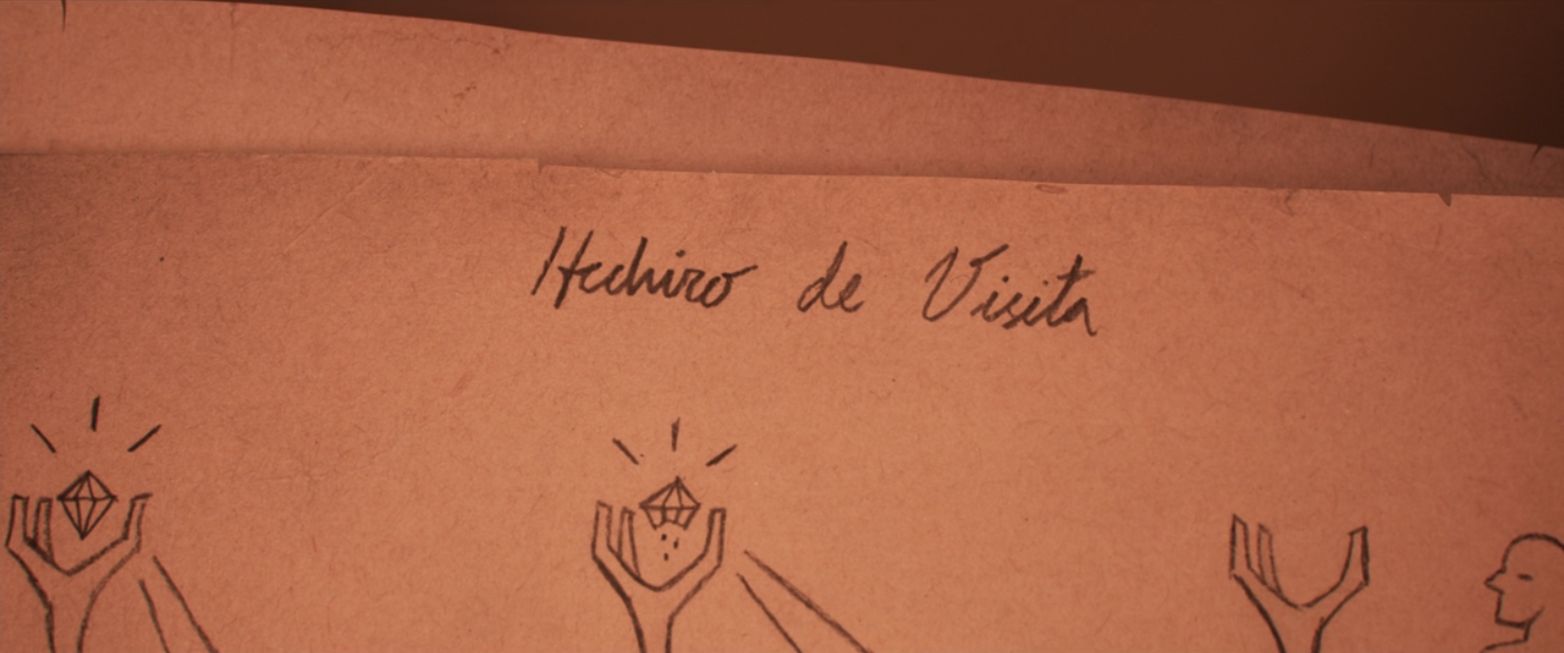 Hechizo de Visita